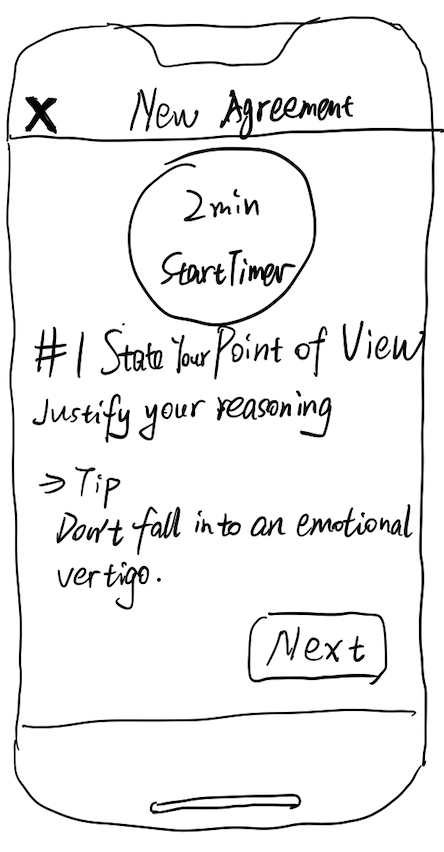 X New Agreement
2min
Start Timer
#1 State Your Point of View
Justify your reasoning
⇒ Tip
Don't fall in to an emotional
vertigo.
Next